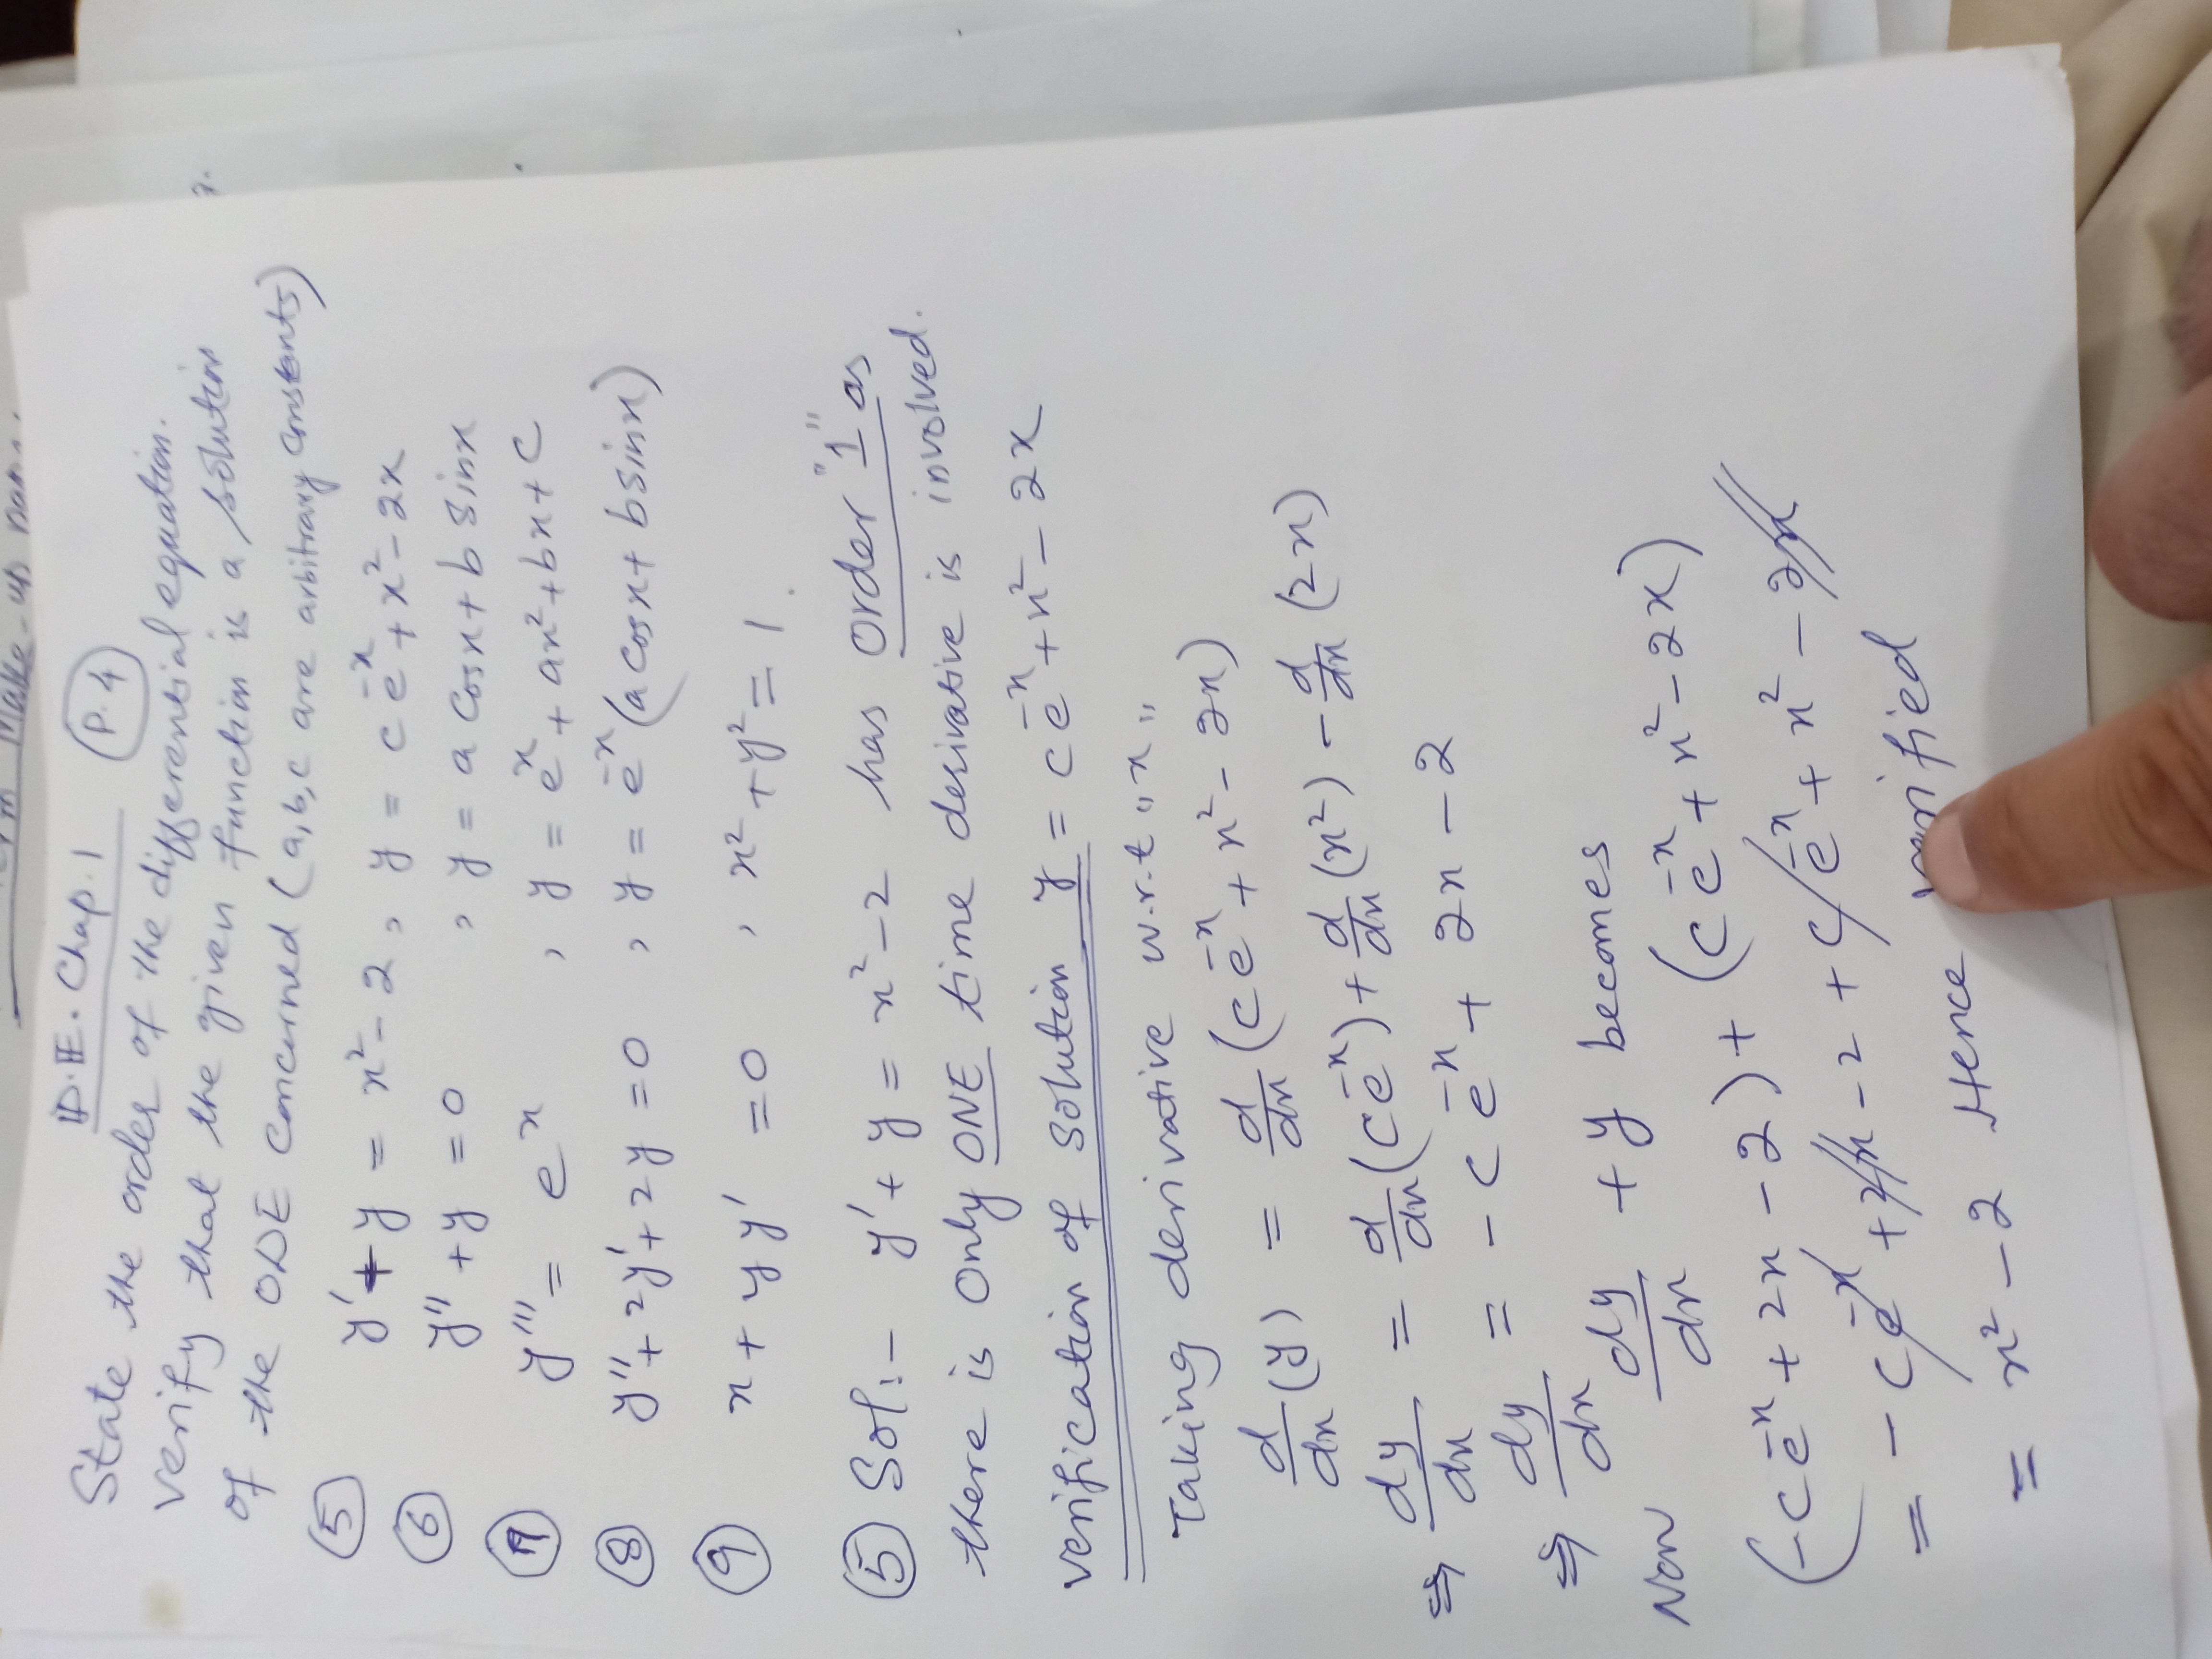 D.E. Chap. 1 P. 4
State the order of the differential equation.
Verify that the given function is a solution
of the ODE concurned (a,b,c are arbitrary constants)
⑤ y' + y = x² - 2 , y = c e⁻ˣ + x² - 2x
⑥ y'' + y = 0 , y = a cosx + b sinx
⑦ y''' = eˣ , y = eˣ + ax² + bx + c
⑧ y'' + 2y' + 2y = 0 , y = e⁻ˣ (a cosx + b sinx)
⑨ x + y y' = 0 , x² + y² = 1.
⑤ Sol:- y' + y = x² - 2 has order "1" as
there is only ONE time derivative is involved.
Verification of Solution y = c e⁻ˣ + x² - 2x
Taking derivative w.r.t "x"
d/dx (y) = d/dx (c e⁻ˣ + x² - 2x)
⇒ dy/dx = d/dx (c e⁻ˣ) + d/dx (x²) - d/dx (2x)
⇒ dy/dx = - c e⁻ˣ + 2x - 2
Now dy/dx + y becomes
(- c e⁻ˣ + 2x - 2) + (c e⁻ˣ + x² - 2x)
= - c e⁻ˣ + 2x - 2 + c e⁻ˣ + x² - 2x
= x² - 2 Hence verified